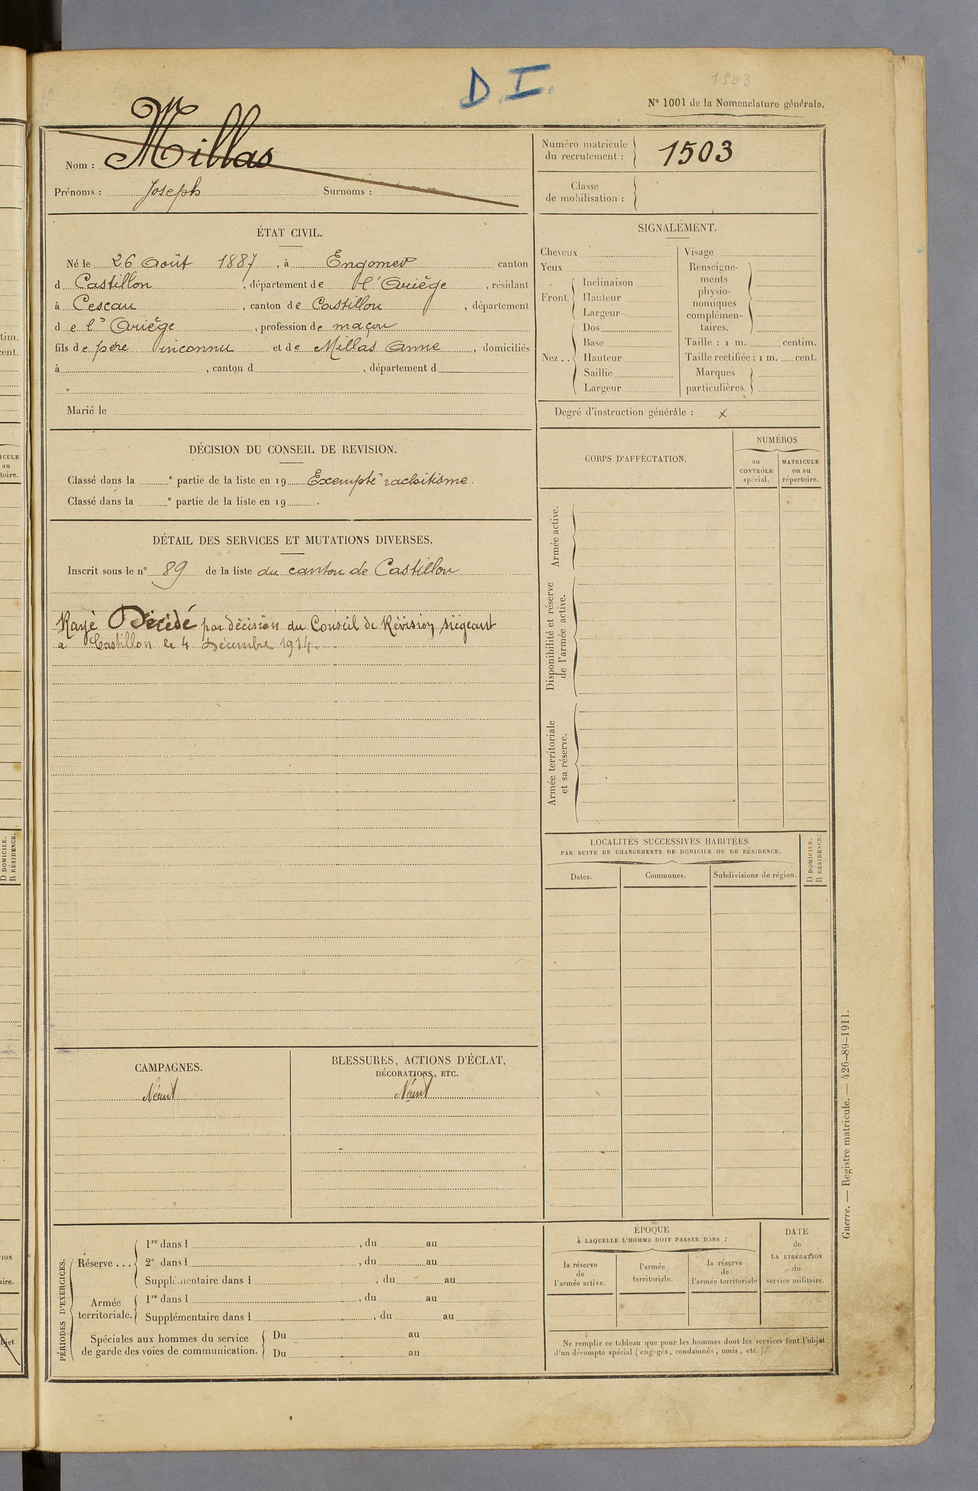 D.I.
1503
N° 1001 de la Nomenclature générale.
Nom : Millas
Prénoms : Joseph Surnoms :
Numéro matricule du recrutement : 1503
Classe de mobilisation :
ÉTAT CIVIL.
Né le 26 Août 1887, à Engomer canton
d Castillon, département de l'Ariège, résidant
à Cescau, canton de Castillon, département
d e l'Ariège, profession de maçon
fils de père inconnu et de Millas Anne, domiciliés
à , canton d , département d
Marié le
SIGNALEMENT.
Cheveux
Yeux
Front. Inclinaison
Hauteur
Largeur
Nez . . Dos
Base
Hauteur
Saillie
Largeur
Visage
Renseigne-
ments
physio-
nomiques
complémen-
taires.
Taille : 1 m. centim.
Taille rectifiée : 1 m. cent.
Marques
particulières.
Degré d'instruction générale : x
DÉCISION DU CONSEIL DE REVISION.
Classé dans la e partie de la liste en 19 Exempté rachitisme.
Classé dans la e partie de la liste en 19 .
DÉTAIL DES SERVICES ET MUTATIONS DIVERSES.
Inscrit sous le n° 89 de la liste du canton de Castillon
Rayé Décédé par décision du Conseil de Révision siégeant
a Castillon le 4 Décembre 1914.
CORPS D'AFFECTATION.
NUMÉROS
au
CONTRÔLE
spécial.
MATRICULE
ou au
répertoire.
Armée active.
Disponibilité et réserve
de l'armée active.
Armée territoriale
et sa réserve.
LOCALITÉS SUCCESSIVES HABITÉES
PAR SUITE DE CHANGEMENTS DE DOMICILE OU DE RÉSIDENCE.
Dates.
Communes.
Subdivisions de région.
D DOMICILE.
R RÉSIDENCE.
CAMPAGNES.
Néant
BLESSURES, ACTIONS D'ÉCLAT,
DÉCORATIONS, ETC.
Néant
PÉRIODES D'EXERCICES.
Réserve . . . 1re dans l , du au
2e dans l , du au
Supplémentaire dans l , du au
Armée
territoriale. 1re dans l , du au
Supplémentaire dans l , du au
Spéciales aux hommes du service
de garde des voies de communication. Du au
Du au
ÉPOQUE
À LAQUELLE L'HOMME DOIT PASSER DANS :
la réserve
de
l'armée active.
l'armée
territoriale.
la réserve
de
l'armée territoriale
DATE
de
LA LIBÉRATION
du
service militaire.
Ne remplir ce tableau que pour les hommes dont les services font l'objet
d'un décompte spécial (engagés, condamnés, omis, etc.).
Guerre. — Registre matricule. — 426-89-1911.